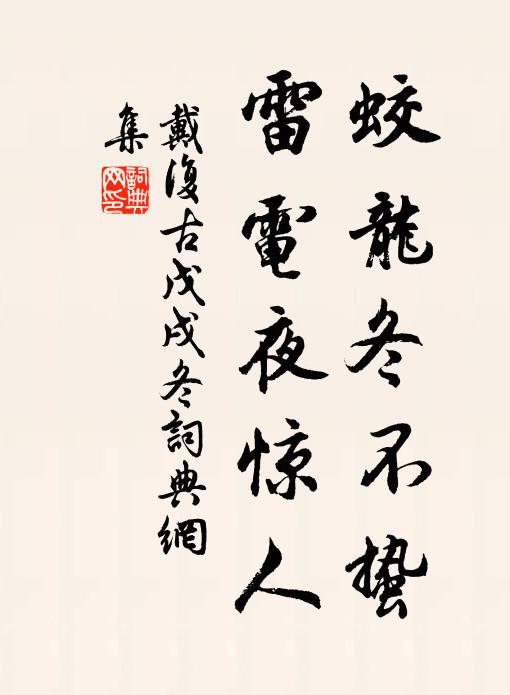 蛟龍冬不蟄
雷電夜惊人
戴復古戊戌冬詞典網
集
詞典
网印